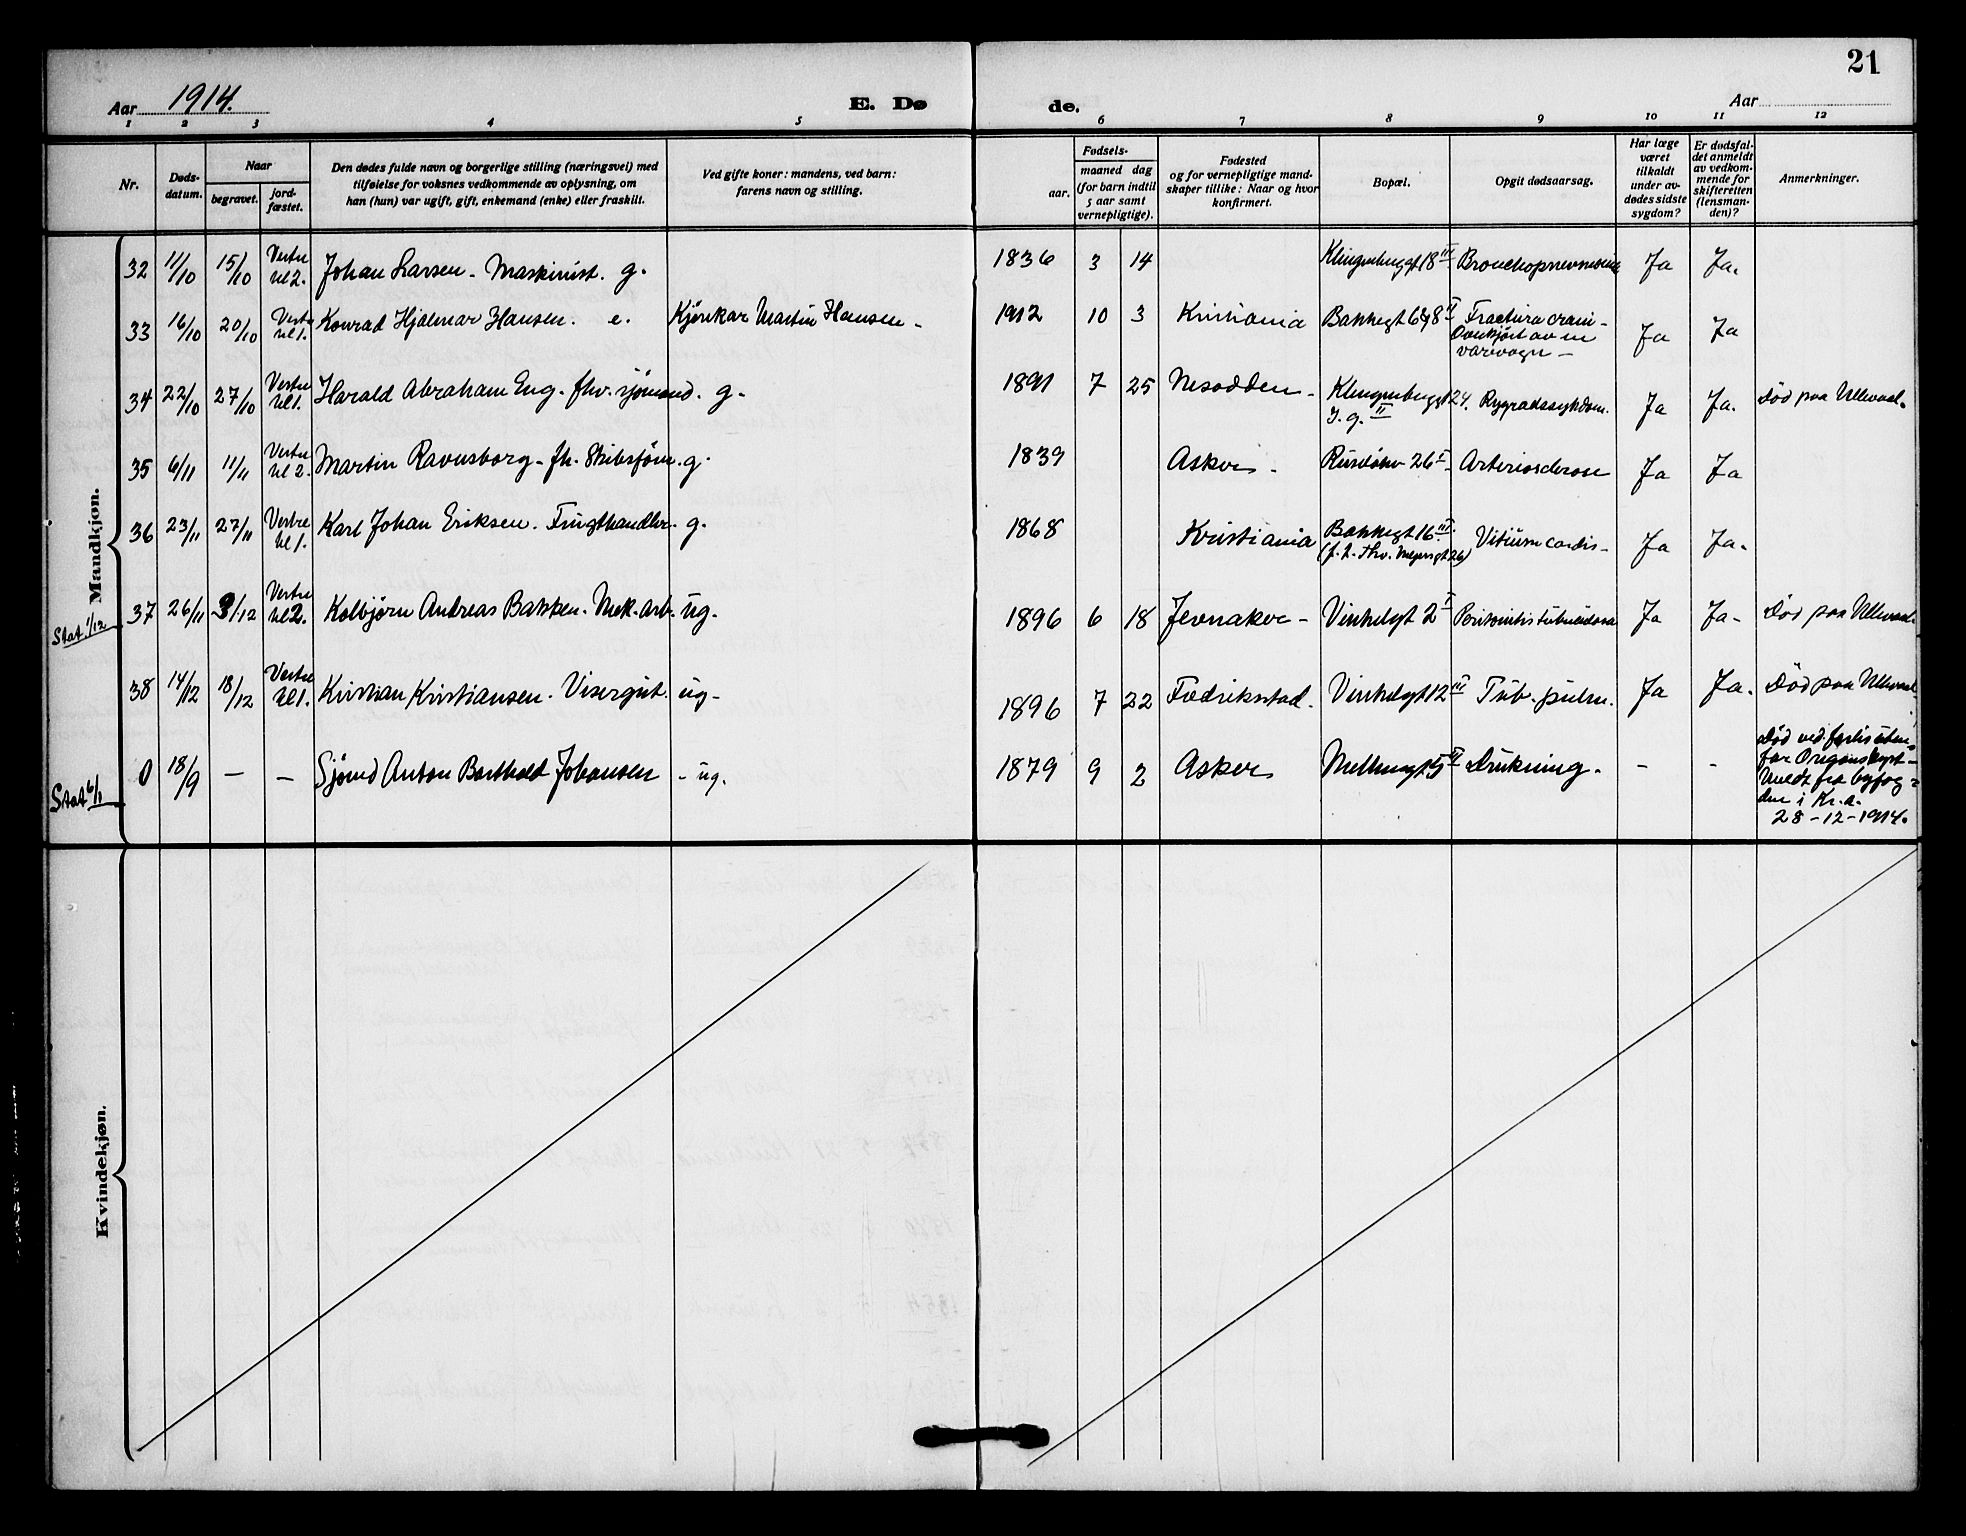 21
Aar 1914. E. Dø de. Aar
1 2 3 4 5 6 7 8 9 10 11 12
Nr.
Døds-
datum.
Naar
begravet.
jord-
fæstet.
Den dødes fulde navn og borgerlige stilling (næringsvei) med
tilføielse for voksnes vedkommende av oplysning, om
han (hun) var ugift, gift, enkemand (enke) eller fraskilt.
Ved gifte koner: mandens, ved barn:
farens navn og stilling.
Fødsels-
aar.
maaned dag
(for barn indtil
5 aar samt
vernepligtige).
Fødested
og for vernepligtige mand-
skaper tillike: Naar og hvor
konfirmert.
Bopæl.
Opgit dødsaarsag.
Har læge
været
tilkaldt
under av-
dødes sidste
sygdom?
Er dødsfal-
det anmeldt
av vedkom-
mende for
skifteretten
(lensman-
den)?
Anmerkninger.
Mandkjøn.
32 11/10 15/10 Vestre vl 2. Johan Larsen. Maskinist. g. 1836 3 14 18 III Bronchopnevmonia Ja Ja.
33 16/10 20/10 Vestre vl 1. Konrad Hjalmar Hansen. e. Kjørekar Martin Hansen - 1912 10 3 Kristiania Bakkegt 6 8 II Fractura cranii -
Overkjørt av en
varevogn -
Ja Ja
34 22/10 27/10 Vestre vl 1. Harald Abraham Eng. fhv. sjømand. g. 1891 7 25 Nesodden - 24.
II
Rygradssykdom. Ja Ja. Død paa Ullevaal.
35 6/11 11/11 Vestre vl 2. Martin Ravnsborg - fh. Skibsfører. g. 1839 Asker - 26 I Arteriosclerose Ja Ja
36 23/11 27/11 Vestre vl 1. Karl Johan Eriksen. Frugthandler. g. 1868 Kristiania Bakkegt 16 III
(f. t. Thv. Meyersgt 26)
Vitium cordis - Ja Ja.
Stat 1/12
37 26/11 3/12 Vestre vl 2. Kolbjørn Andreas Bakken. Mek. arb. ug. 1896 6 18 Jevnaker - Vinkelgt 2 I Peritonitis tuberculosa Ja Ja - Død paa Ullevaal.
38 14/12 18/12 Vestre vl 1. Kristian Kristiansen. Visergut. ug - 1896 7 22 Fredriksstad. Vinkelgt 12 III Tub. pulm. Ja Ja. Død paa Ullevaal.
Stat 6/1
0 18/9 - - Sjømd Anton Barthold Johansen - ug. 1879 9 2 Asker 5 II Drukning. - -
Død ved forlis uten-
for Oregons kyst -
Meldt fra byfog-
den i Kr.a.
28 - 12 - 1914.
Kvindekjøn.